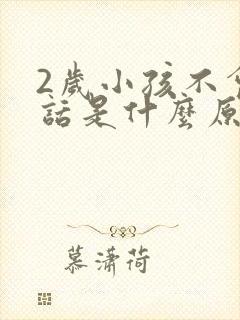 2歲小孩不會
話是什麼原
慕瀟荷